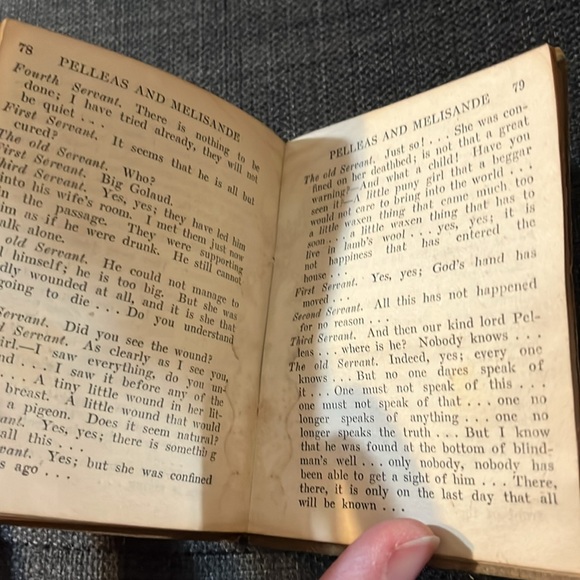 78
PELLEAS AND MELISANDE
Fourth Servant. There is nothing to be
done; I have tried already, they will not
be quiet . . .
First Servant. It seems that he is all but
cured?
The old Servant. Who?
First Servant. Big Golaud.
Third Servant. Yes, yes; they have led him
into his wife's room. I met them just now
in the passage. They were supporting
him as if he were drunk. He still cannot
walk alone.
old Servant. He could not manage to
himself; he is too big. But she was
wounded at all, and it is she that
going to die . . . Do you understand
Servant. Did you see the wound?
Servant. As clearly as I see you,
girl.—I saw everything, do you
. . . I saw it before any of the
. . . A tiny little wound in her lit-
breast. A little wound that would
a pigeon. Does it seem natural?
Yes, yes; there is something
all this . . .
Yes; but she was confined
ago . . .
79
PELLEAS AND MELISANDE
The old Servant. Just so! . . . She was con-
fined on her deathbed; is not that a great
warning?—And what a child! Have you
seen it?—A little puny girl that a beggar
would not care to bring into the world . . .
a little waxen thing that came much too
soon . . . a little waxen thing that has to
live in lamb's wool . . . yes, yes; it is
not happiness that has entered the
house . . .
First Servant. Yes, yes; God's hand has
moved . . .
Second Servant. All this has not happened
for no reason . . .
Third Servant. And then our kind lord Pel-
leas . . . where is he? Nobody knows . . .
The old Servant. Indeed, yes; every one
knows . . . But no one dares speak of
it . . . One must not speak of this . . .
one must not speak of that . . . one no
longer speaks of anything . . . one no
longer speaks the truth . . . But I know
that he was found at the bottom of blind-
man's well . . . only nobody, nobody has
been able to get a sight of him . . . There,
there, it is only on the last day that all
will be known . . .